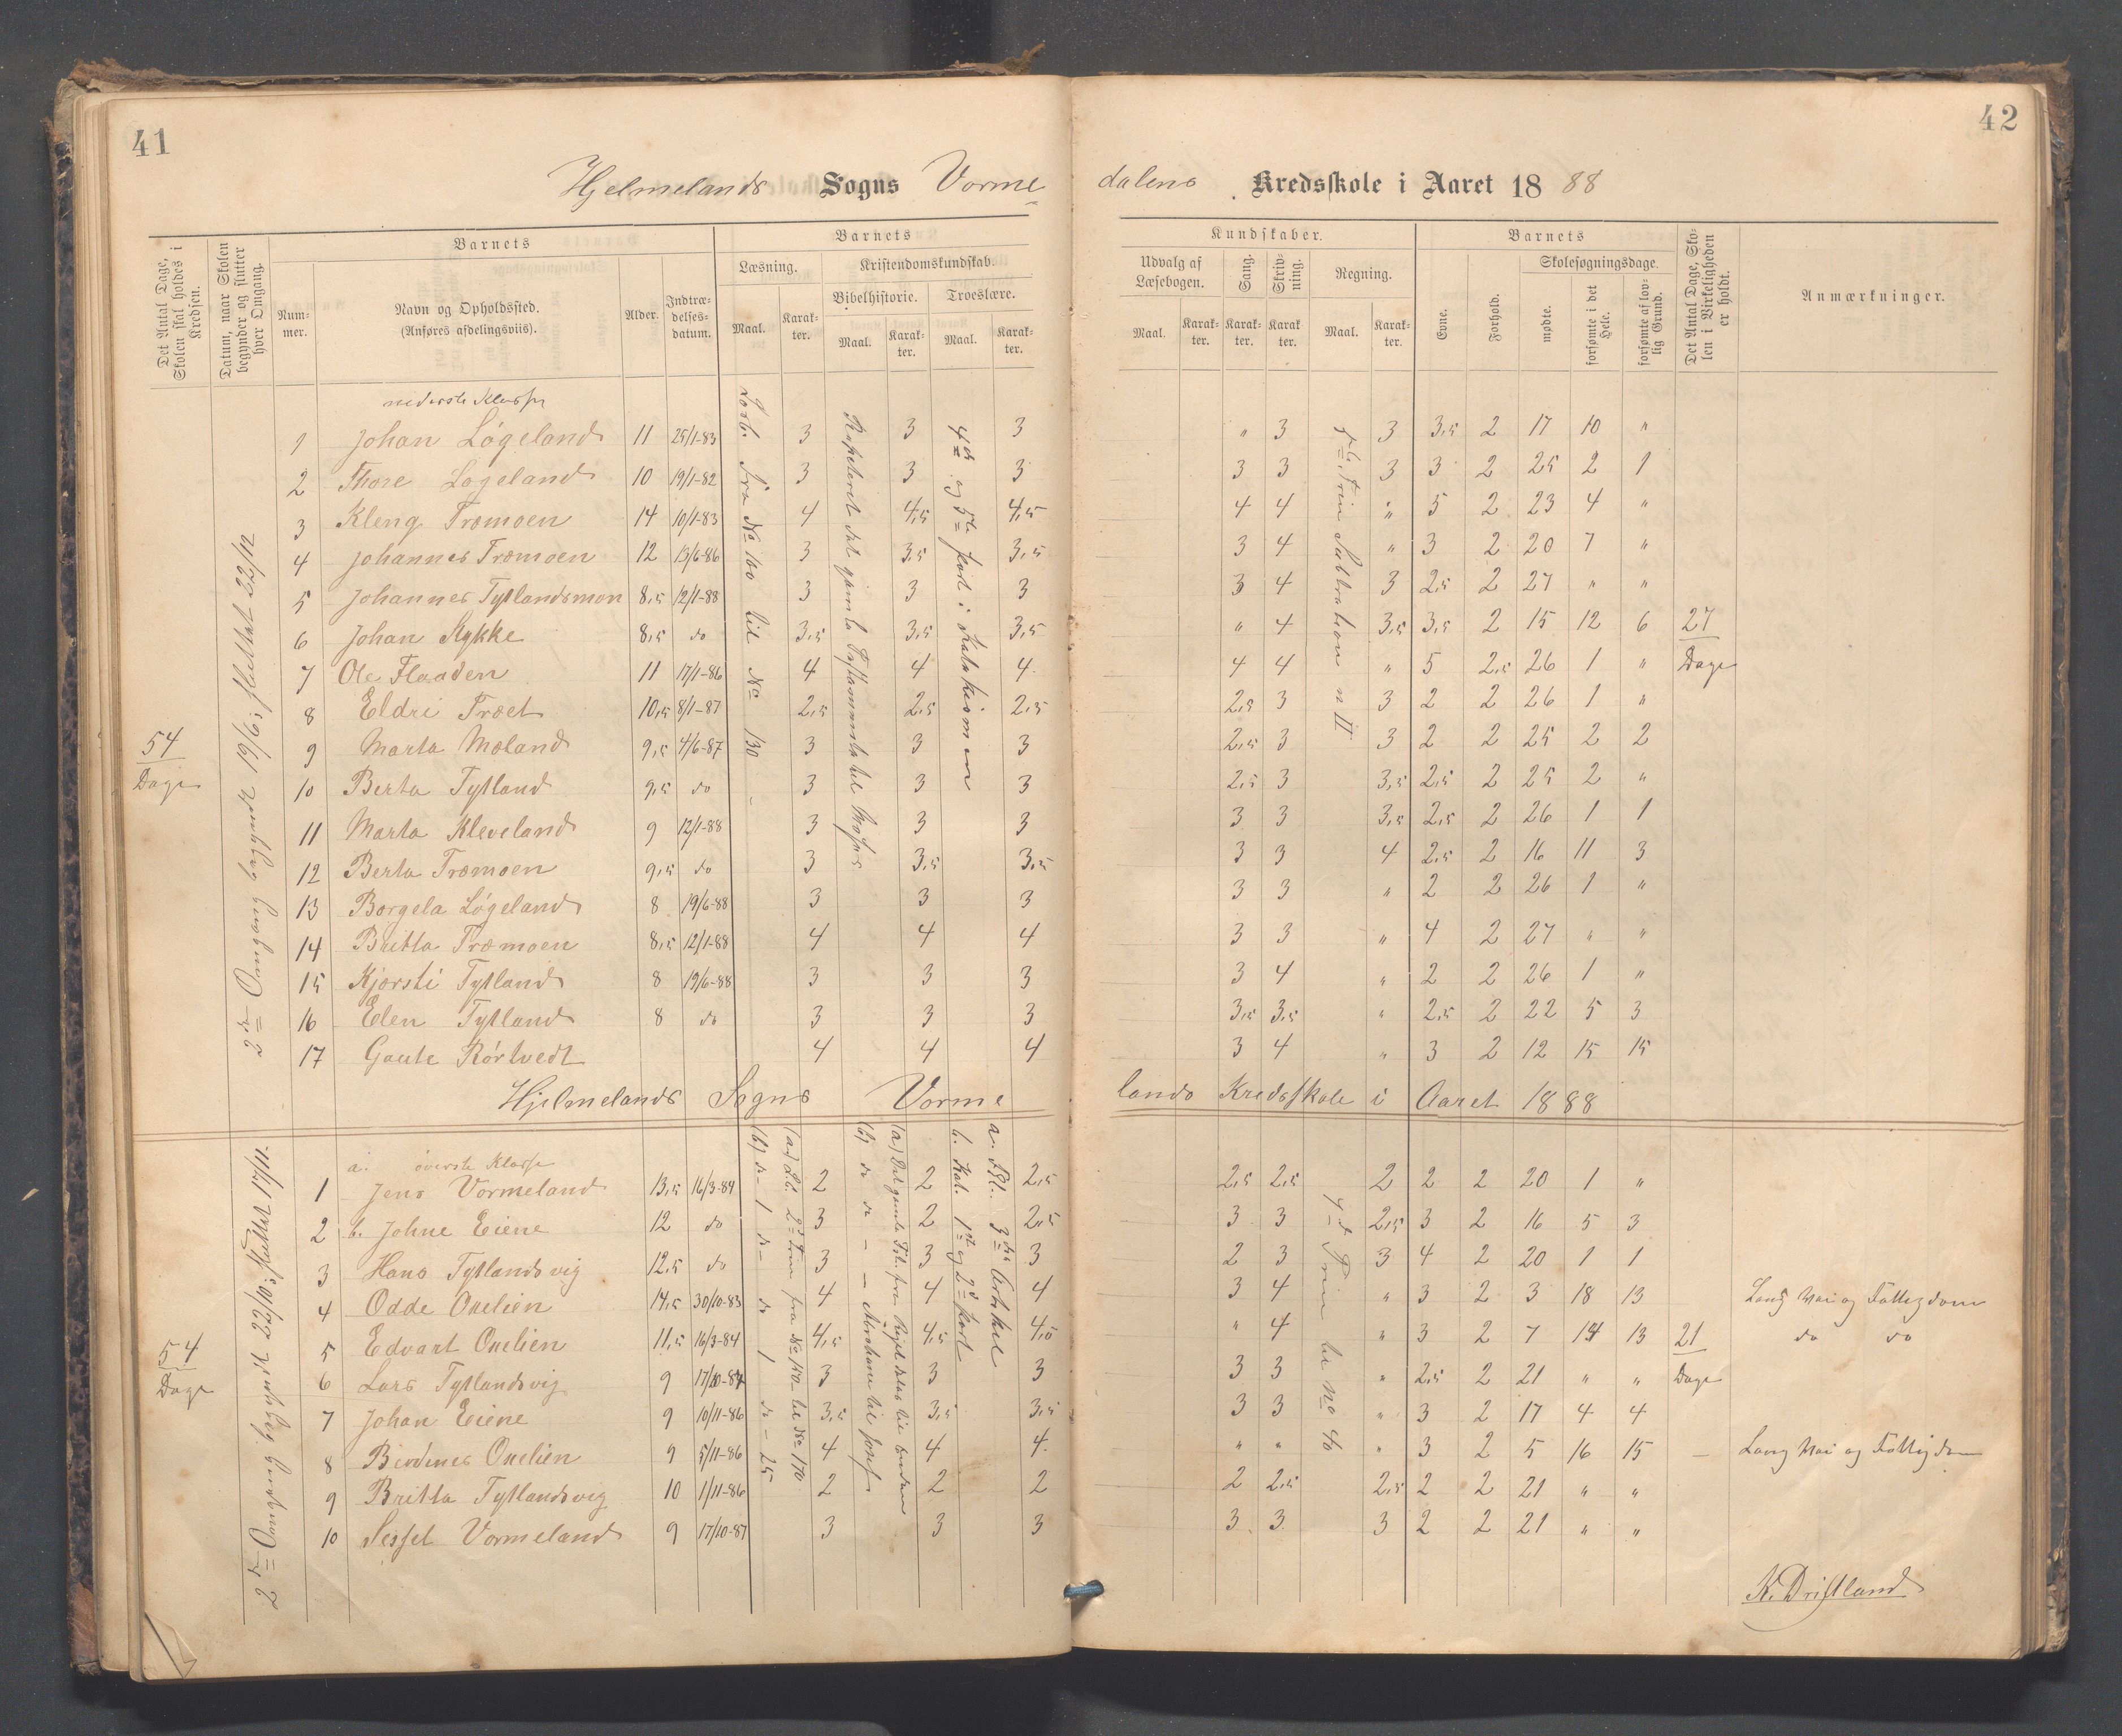 41
42
Hjelmelands Sogns Vorme
dalens Kredsskole i Aaret 18 88
Det Antal Dage, Skolen skal holdes i Kredsen.
Datum, naar Skolen begynder og slutter hver Omgang.
Barnets
Barnets
Kundskaber.
Barnets
Det Antal Dage, Skolen i Virkeligheden er holdt.
Anmærkninger.
Nummer.
Navn og Opholdssted.
(Anføres afdelingsviis).
Alder.
Indtrædelsesdatum.
Læsning.
Kristendomskundskab.
Bibelhistorie.
Troeslære.
Udvalg af Læsebogen.
Sang.
Skrivning.
Regning.
Evne.
Forhold.
Skolesøgningsdage.
mødte.
forsømte i det Hele.
forsømte af lovlig Grund.
Maal.
Karakter.
Maal.
Karakter.
Maal.
Karakter.
Maal.
Karakter.
Karakter.
Karakter
Maal.
Karakter.
54
Dage
2den Omgang begyndt 19/6; sluttet 22/12
nederste Klasse
Læsb. fra No 100 til No 130
4de og 5te Part i Katekismen
27
Dage
1 Johan Løgeland 11 25/1-83 3 3 3 " 3 3 3,5 2 17 10 "
2 Thore Løgeland 10 19/1-82 3 3 3 3 3 3 3 2 25 2 1
3 Kleng Træmoen 14 10/1-83 4 4,5 4,5 4 4 " 5 2 23 4 "
4 Johannes Træmoen 12 13/6-86 3 3,5 3,5 3 4 " 3 2 20 7 "
5 Johannes Tytlandsmoen 8,5 12/1-88 3 3 3 3 4 3 2,5 2 27 " "
6 Johan Stykke 8,5 do 3,5 3,5 3,5 " 4 3,5 3,5 2 15 12 6
7 Ole Flaaden 11 17/1-86 4 4 4 4 4 " 5 2,5 26 1 "
8 Eldri Træet 10,5 8/1-87 2,5 2,5 2,5 2,5 3 3 2 2 26 1 "
9 Marta Mæland 9,5 4/6-87 3 3 3 2,5 3 3 2 2 25 2 2
10 Berta Tytland 9,5 do 3 3 3 2,5 3 3,5 2,5 2 25 2 "
11 Marta Kleveland 9 12/1-88 3 3 3 3 3 3,5 2,5 2 26 1 1
12 Berta Træmoen 9,5 do 3 3,5 3,5 3 3 4 2,5 2 16 11 3
13 Borgela Løgeland 8 19/6-88 3 3 3 3 3 " 2 2 26 1 "
14 Britta Træmoen 8,5 12/1-88 4 4 4 3 3 " 4 2 27 " "
15 Kjersti Tytland 8 19/6-88 3 3 3 3 4 " 2 2 26 1 "
16 Elen Tytland 8 do 3 3 3 3,5 3,5 " 2,5 2 22 5 3
17 Gaute Rørtvedt 4 4 4 3 4 " 3 2 12 15 15
Hjelmelands Sogns Vorme
lands Kredsskole i Aaret 1888
54
Dage
2den Omgang begyndt 22/10; sluttet 17/11.
a. øverste Klasse
a. Fkl. 3die Artikel
b. Kat. 1ste og 2d Part
4de Trin til no 40
21
Dage
1 Jens Vormeland 13,5 16/3-84 2 2 2,5 2,5 2,5 2 2 2 20 1 "
2 b. Johne Eiene 12 do 3 2 2,5 3 3 2,5 3 2 16 5 3
3 Hans Tytlandsvig 12,5 do 3 3 3 2 3 3 4 2 20 1 1
4 Odde Onelien 14,5 30/10-83 4 4 4 3 4 " 3 2 3 18 13 Lang Vei og Fattigdom
5 Edvart Onelien 11,5 16/3-84 4,5 4,5 4,5 " 4 " 3 2 7 14 13 do do
6 Lars Tytlandsvig 9 17/10-87 3 3 3 3 3 " 2,5 2 21 " "
7 Johan Eiene 9 10/11-86 3,5 3,5 3,5 3 3 " 3 2 17 4 4
8 Berdines Onelien 9 5/11-86 4 4 4 " " " 3 2 5 16 15 — Lang Vei og Fattigdom
9 Britta Tytlandsvig 10 1/11-86 2 2 2 2 2,5 2,5 2 2 21 " "
10 Sessel Vormeland 9 17/10-87 3 3 3 3 3 3 2 2 21 " "
K. Driftland